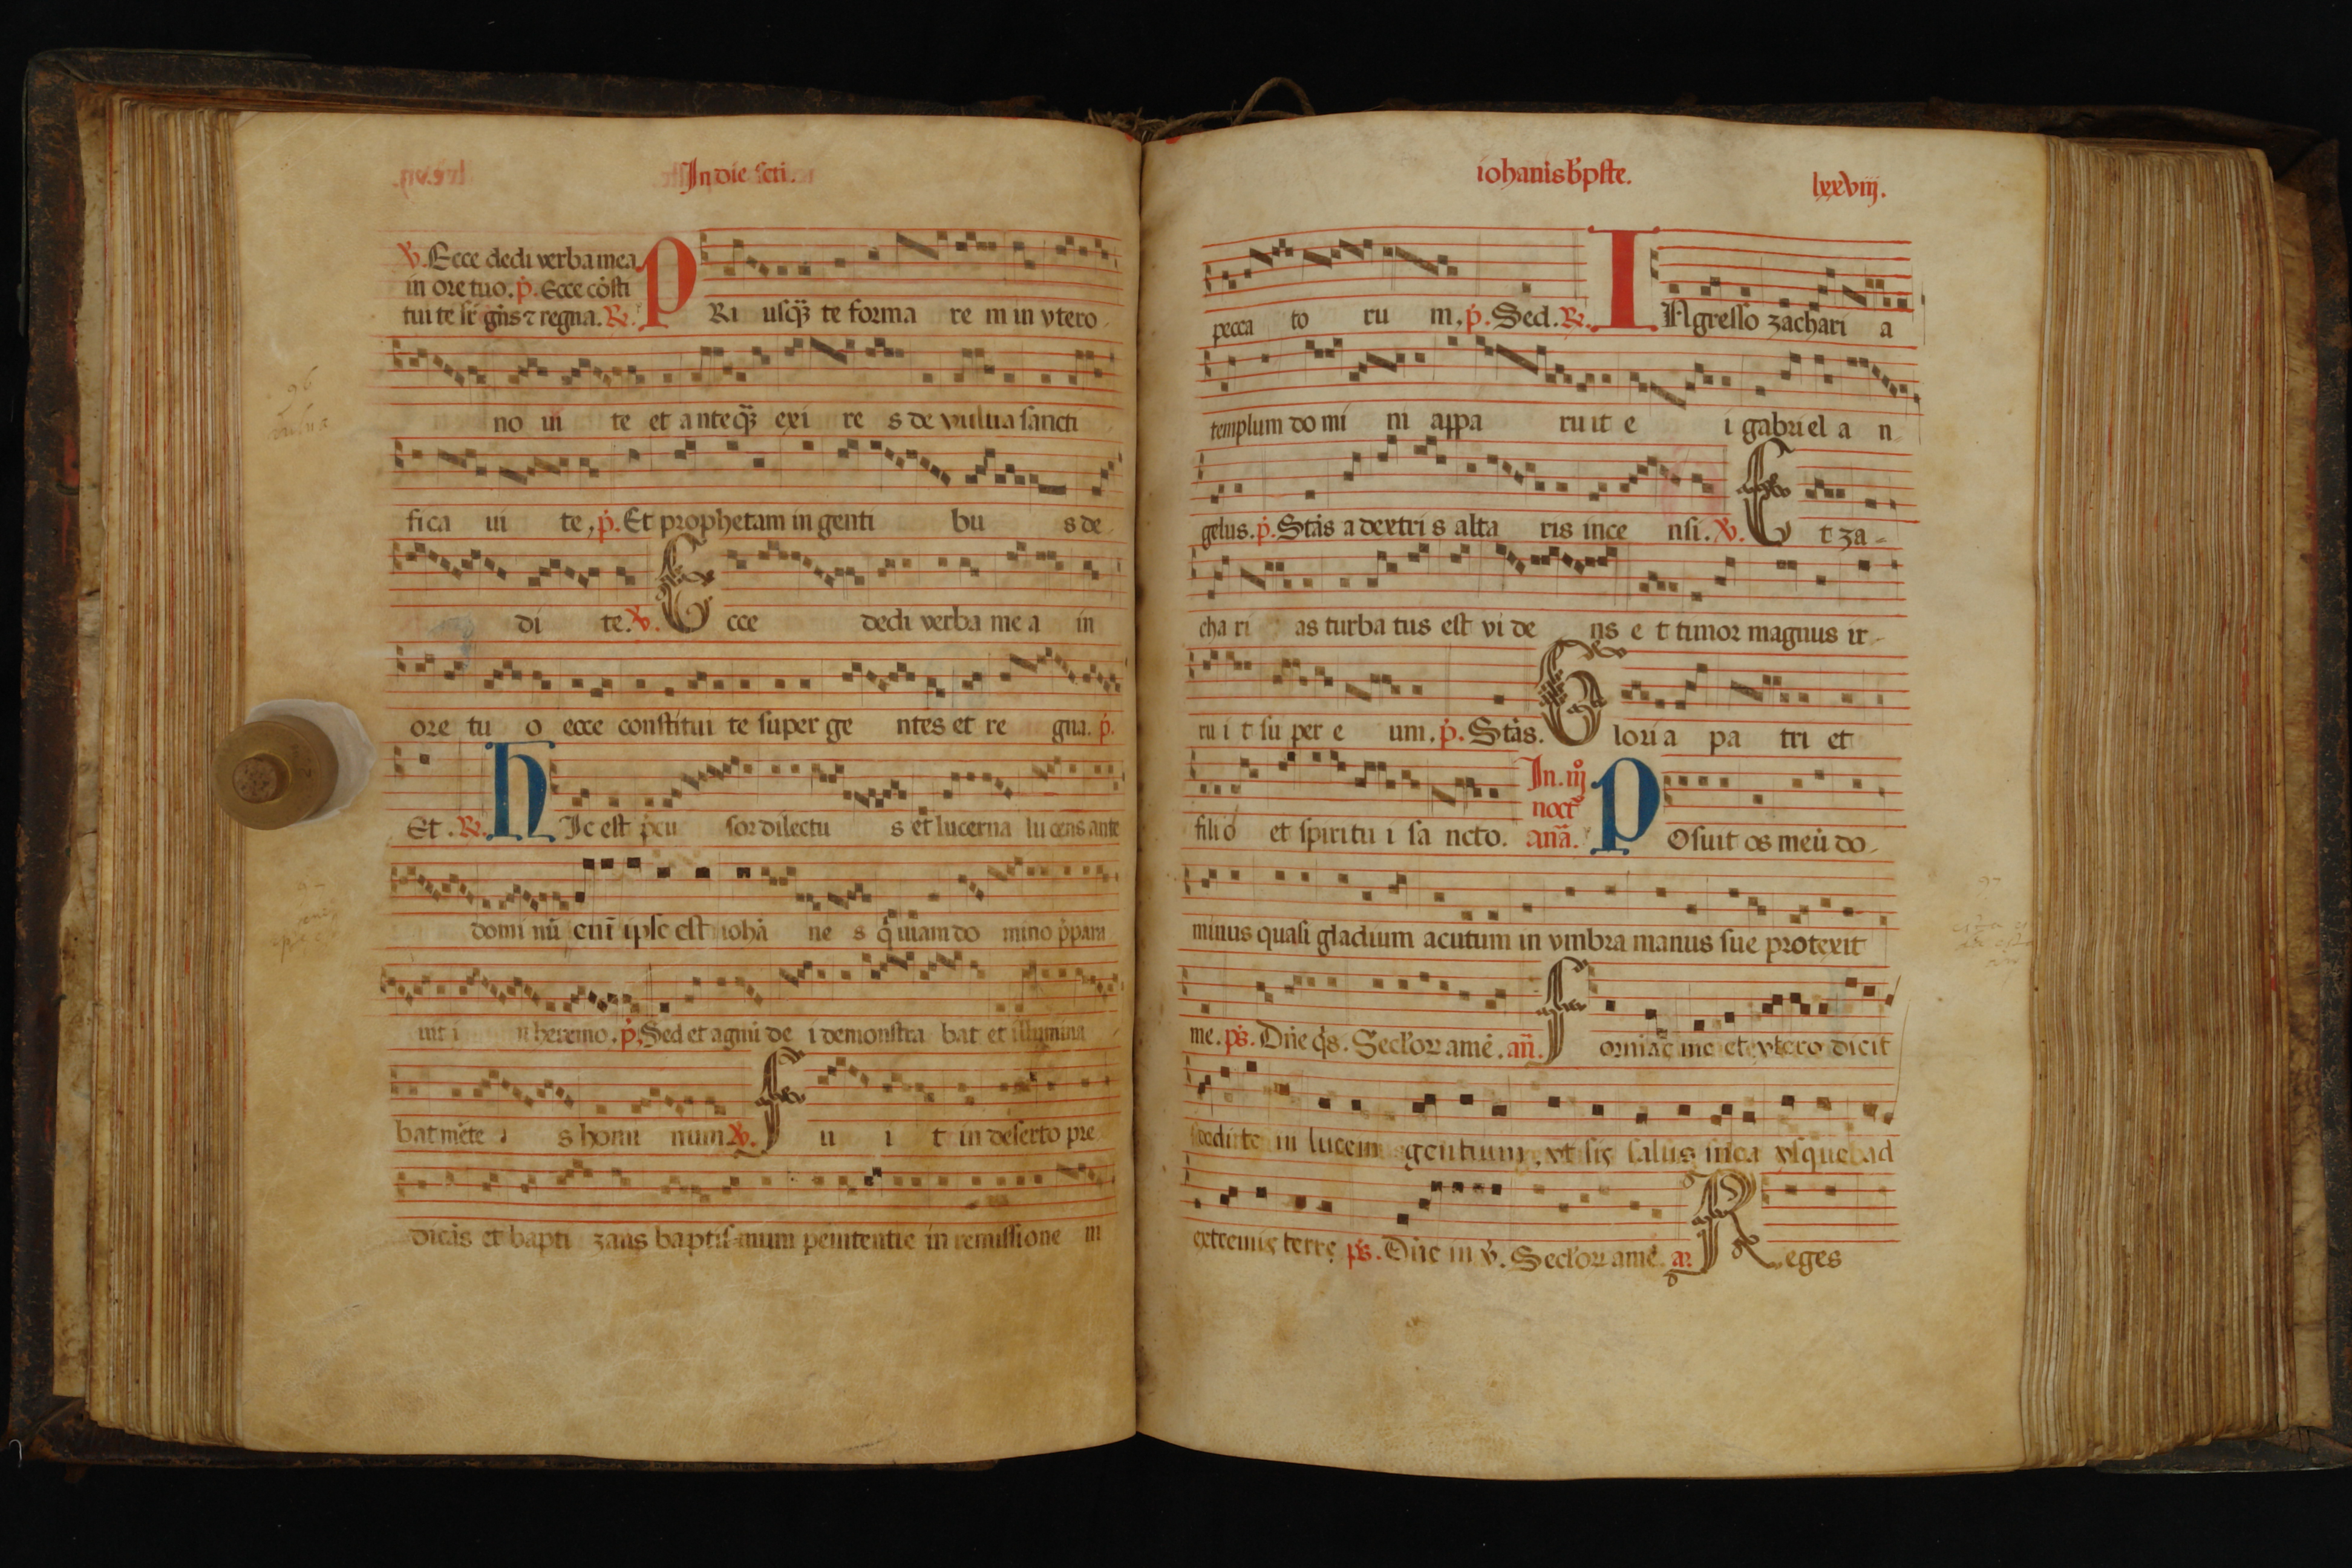 In die scti.
℣. Ecce dedi verba mea
in ore tuo. p̄. Ecce cōsti
tui te sr̄ gn̄s ⁊ regna. ℟.
PRi usq̄ te forma re m in vtero
no ui te et anteq̄ exi re s de vulua sancti
fica ui te, p̄. Et prophetam in genti bu s de
di te. ℣. E cce dedi verba me a in
ore tu o ecce constitui te super ge ntes et re gna. p̄.
Et. ℟. HIc est p̄cu sor dilectu s et lucerna lu cens ante
domi nū eni ipse est iohā ne s q̄ uiam do mino p̄para
uit i n heremo. p̄. Sed et agnū de i demonstra bat et illumina
bat mēte s homi num ℣. f u i t in deserto pre
dicās et bapti zans baptis-mum penitentie in remissione m
iohanis bp̄ste.
lxxviij.
pecca to ru m. p̄. Sed. ℟. INgresso zachari a
templum do mi ni appa ru it e i gabriel a n
gelus. p̄. Stās a dextri s alta ris ince nsi. ℣. E t za-
cha ri as turba tus est vi de ns e t timor magnus ir-
ru i t su per e um. p̄. Stās. G lori a pa tri et
filio et spiritu i sa ncto. In. iij
noct
an̄a. POsuit os meū do-
minus quasi gladium acutum in vmbra manus sue protexit
me. ps̄. Dn̄e q̄s. Sec̄lor amē. an̄. f ormās me et vtero dicit
dedi te in lucem gentium, vt sis salus mea vsque ad
extremis terrę ps̄. Dn̄e in v̄. Sec̄lor amē. a. Reges